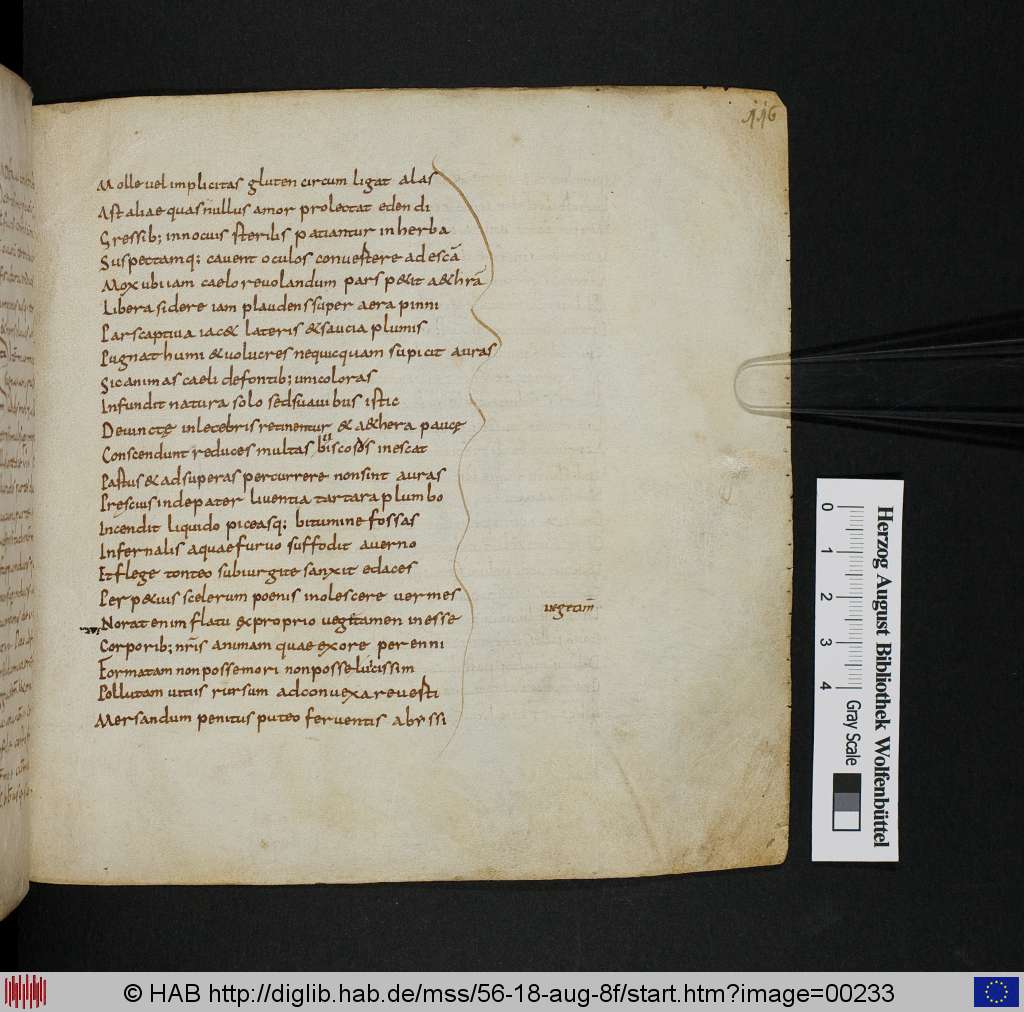 116
Molle vel implicitas gluten circum ligat alas
Ast aliae quas nullus amor prolectat edendi
Gressib; innocuis sterilis patiantur in herba
Suspectamq; cavent oculos convestere ad escā
Mox ubi iam caelo revolandum pars p&it a&hrā
Libera sidere iam plaudens super aera pinni
Pars captiva iac& lateris & saucia plumis
Pugnat humi & volucres nequicquam supicit auras
Sic animas caeli de fontib; unicoloras
Infundit natura solo sed suavibus istic
Devinctę inlecebris retinentur & a&hera paucę
Conscendunt reduces multas viscosus inescat
Pastus & ad superas percurrere non sint auras
Prescius inde pater liventia tartara plumbo
Incendit liquido piceasq; bitumine fossas
Infernalis aquae furvo suffodit averno
Et flege tonteo sub iurgite sanxit edaces
Perp&uis scelerum poenis inolescere vermes
vegetam̄
Norat enim flatu ex proprio vegetamen inesse
Corporib; nr̄is animam quae ex ore perenni
Formatam non posse mori non posse vicissim
Pollutam vitiis rursum ad convexa revesti
Mersandum penitus puteo ferventis abissi
Herzog August Bibliothek Wolfenbüttel
0 1 2 3 4 Gray Scale
© HAB http://diglib.hab.de/mss/56-18-aug-8f/start.htm?image=00233